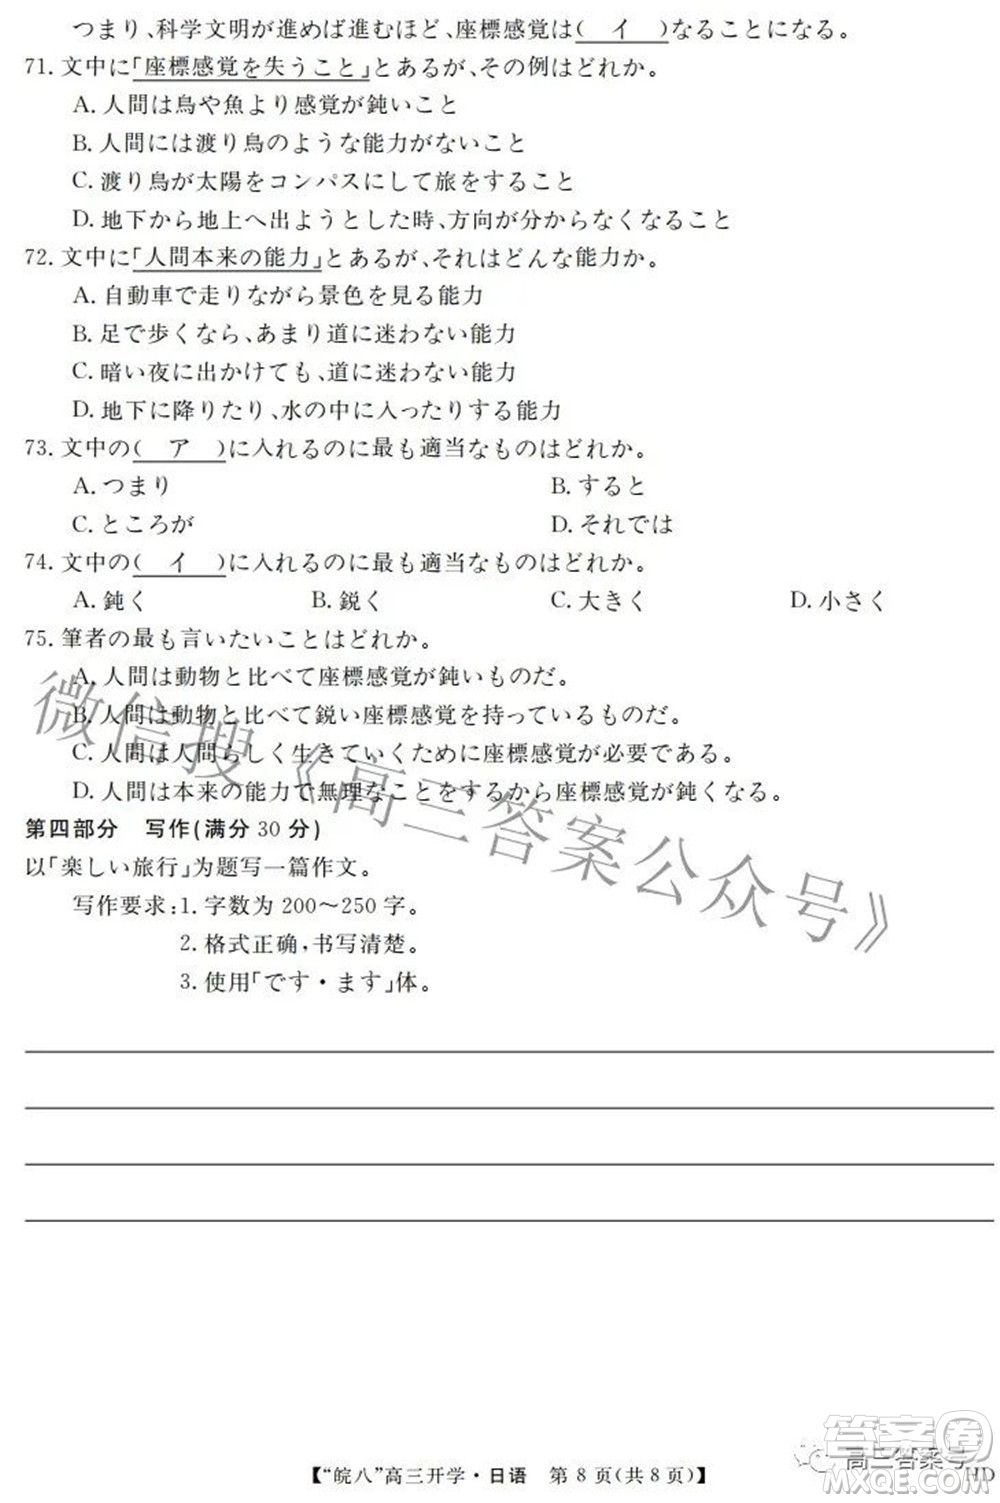 つまり、科学文明が進めば進むほど、座標感覚は(　イ　)なることになる。
71. 文中に「座標感覚を失うこと」とあるが、その例はどれか。
A. 人間は鳥や魚より感覚が鈍いこと
B. 人間には渡り鳥のような能力がないこと
C. 渡り鳥が太陽をコンパスにして旅をすること
D. 地下から地上へ出ようとした時、方向が分からなくなること
72. 文中に「人間本来の能力」とあるが、それはどんな能力か。
A. 自動車で走りながら景色を見る能力
B. 足で歩くなら、あまり道に迷わない能力
C. 暗い夜に出かけても、道に迷わない能力
D. 地下に降りたり、水の中に入ったりする能力
73. 文中の(　ア　)に入れるのに最も適当なものはどれか。
A. つまり B. すると
C. ところが D. それでは
74. 文中の(　イ　)に入れるのに最も適当なものはどれか。
A. 鈍く B. 鋭く C. 大きく D. 小さく
75. 筆者の最も言いたいことはどれか。
A. 人間は動物と比べて座標感覚が鈍いものだ。
B. 人間は動物と比べて鋭い座標感覚を持っているものだ。
C. 人間は人間らしく生きていくために座標感覚が必要である。
D. 人間は本来の能力で無理なことをするから座標感覚が鈍くなる。
第四部分　写作(满分 30 分)
以「楽しい旅行」为题写一篇作文。
写作要求:1. 字数为 200～250 字。
2. 格式正确,书写清楚。
3. 使用「です・ます」体。
微信搜《高三答案公众号》
【“皖八”高三开学・日语　第 8 页(共 8 页)】
高三答案号
HD
答案圈
MXQE.COM